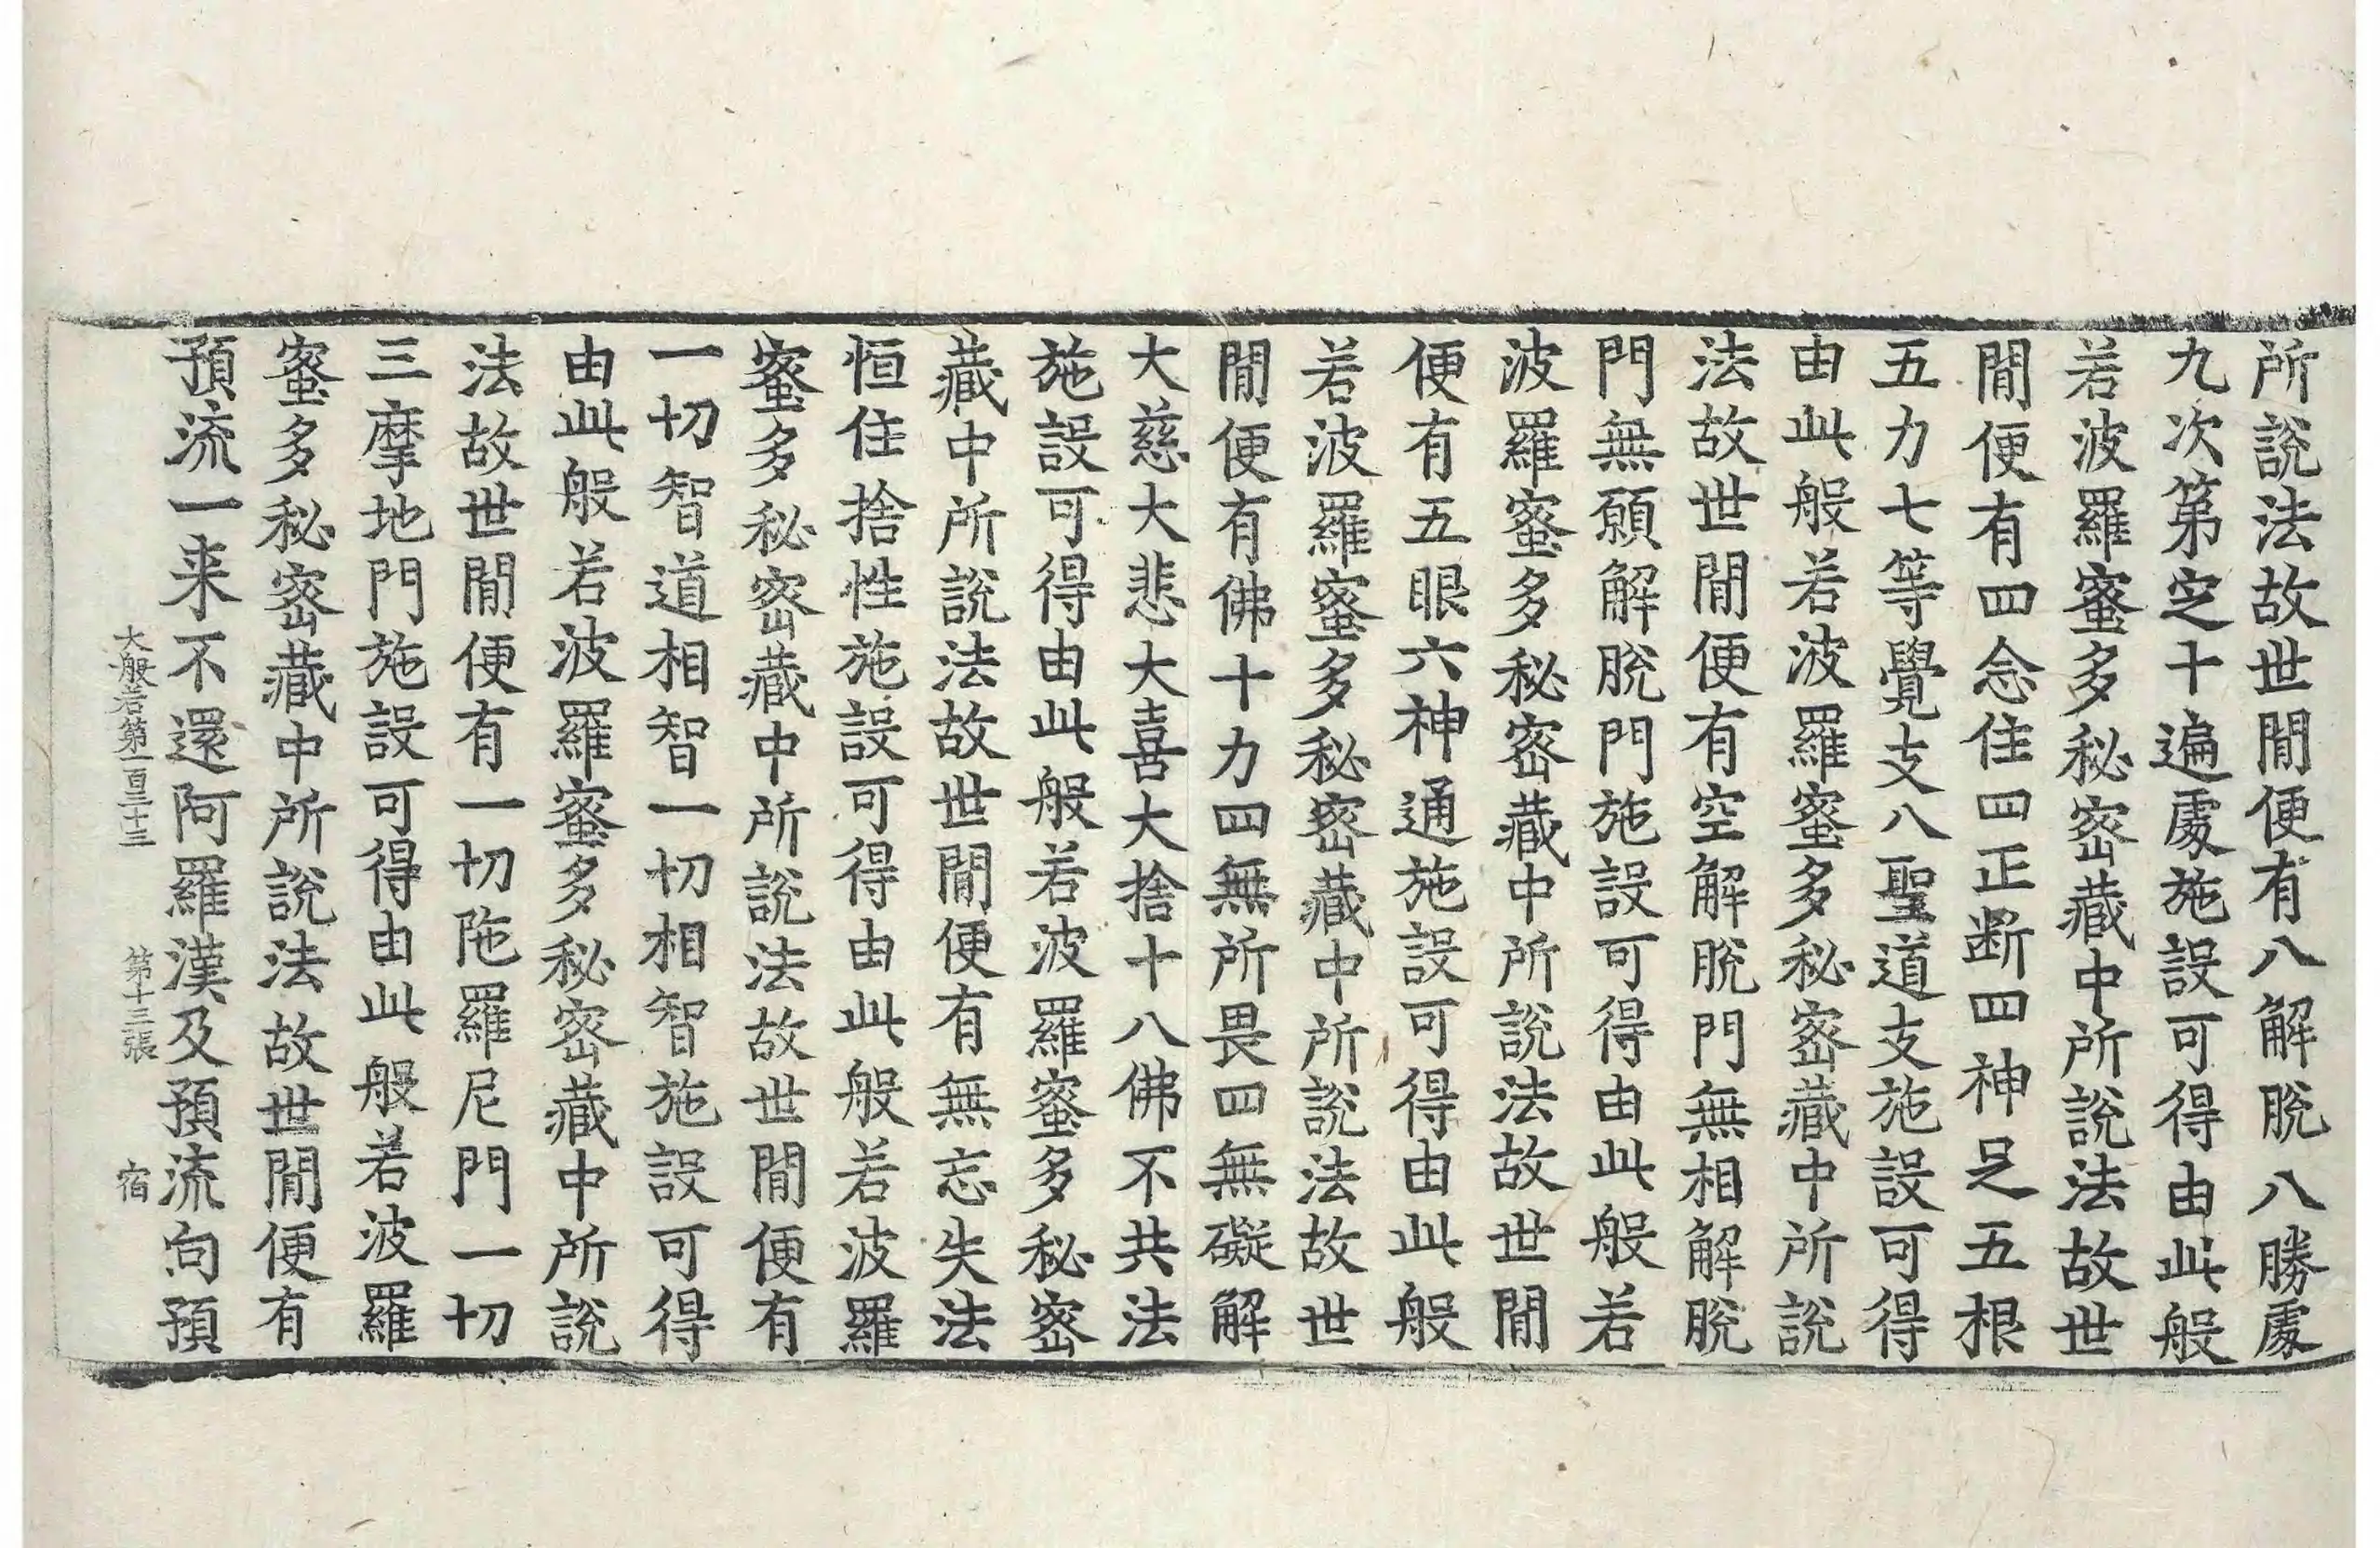 所說法故世閒便有八解脫八勝處
九次第定十遍處施設可得由此般
若波羅蜜多秘密藏中所說法故世
閒便有四念住四正断四神足五根
五力七等覺支八聖道支施設可得
由此般若波羅蜜多秘密藏中所說
法故世閒便有空解脫門無相解脫
門無願解脫門施設可得由此般若
波羅蜜多秘密藏中所說法故世閒
便有五眼六神通施設可得由此般
若波羅蜜多秘密藏中所說法故世
閒便有佛十力四無所畏四無礙解
大慈大悲大喜大捨十八佛不共法
施設可得由此般若波羅蜜多秘密
藏中所說法故世閒便有無忘失法
恒住捨性施設可得由此般若波羅
蜜多秘密藏中所說法故世閒便有
一切智道相智一切相智施設可得
由此般若波羅蜜多秘密藏中所說
法故世閒便有一切陁羅尼門一切
三摩地門施設可得由此般若波羅
蜜多秘密藏中所說法故世閒便有
預流一来不還阿羅漢及預流向預
大般若第一百三十三 第十三張 宿